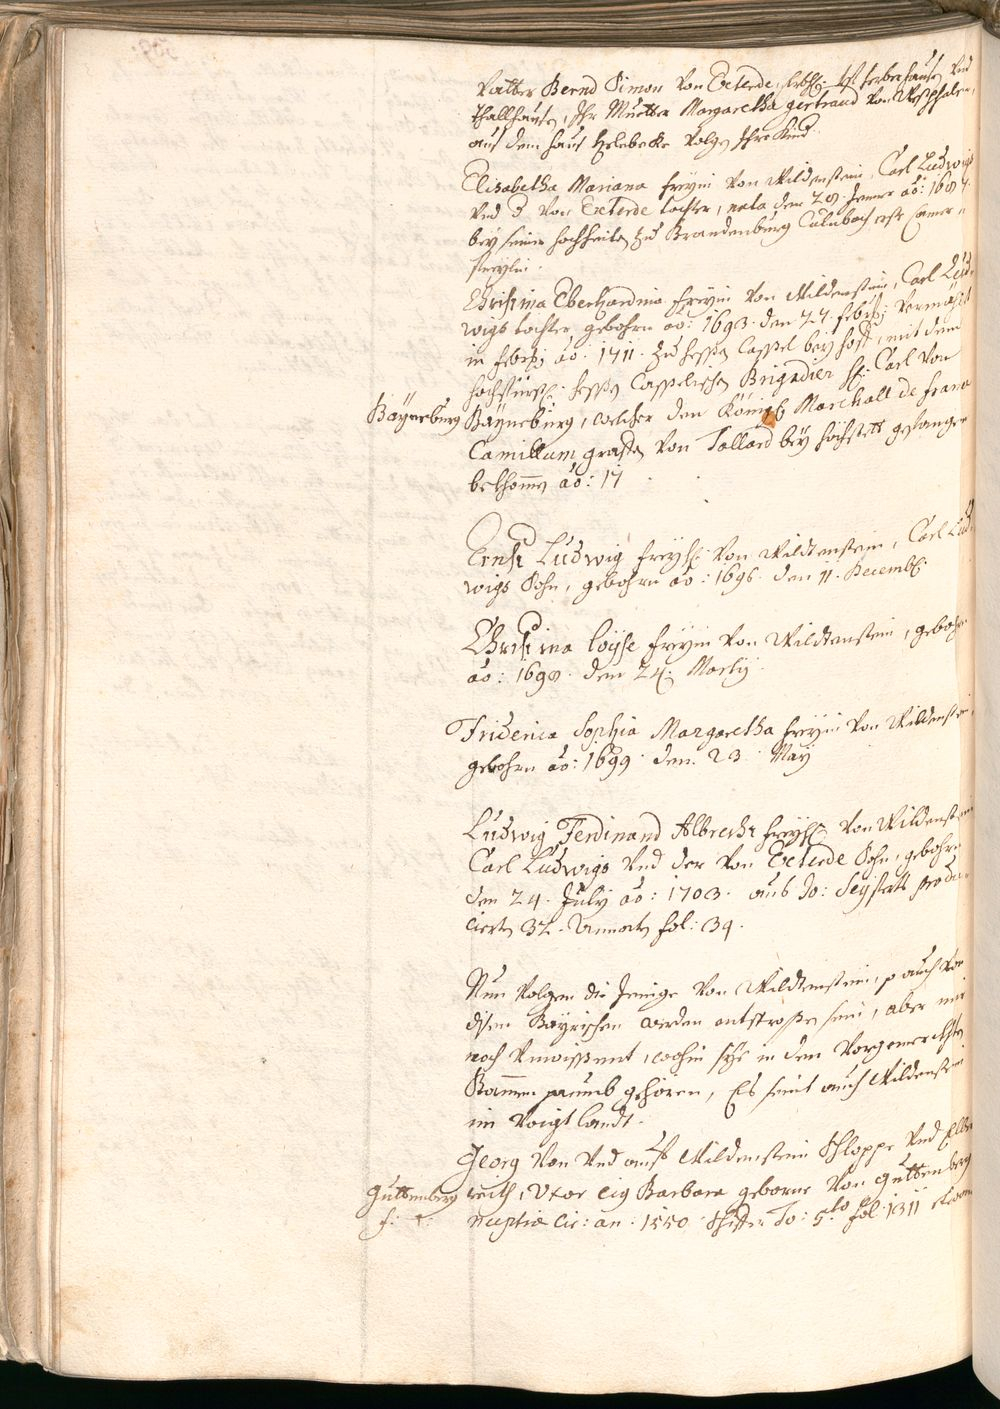 Vatter Bernd Simon von Exterde, Erbh: ist ferberhausen Vnd
Thallhausen, Ihr Muetter Margaretha gertraud von Westphalen,
aus dem haus Helebecke Volgen Ihre Kind
Elisabetha Mariana freyin von Wildenstein, Carl Ludwigs
Vnd d von Exterde tochter, nata den 28 Jenner ao: 1687.
bey seiner hochheiten zu Brandenburg Culmbach erste Camer
freylin.
Christina Eberhardina freyin von Wildenstein, Carl Lud-
wigs tochter, gebohrn ao: 1693. den 27. febr: Vermählt
in febr: ao: 1711. zu hessen Cassel bey hoff, mit dem
hochfürstl: hessen Casselischen Brigadier H: Carl von
Bäyneburg Bäyneburg, welcher den Königl Marchall de france
Camillum graffen von Tallard bey hochstett gefangen
bekhommen ao: 17
Ernst Ludwig freyh: von Wildtenstein, Carl Lud-
wigs Sohn, gebohrn ao: 1696. den 11. Decemb:
Christina Loyse freyin von Wildtenstein, gebohrn
ao: 1698. den 24. Martij
Friderica Sophia Margaretha freyin von Wildenstein,
gebohrn ao: 1699. den. 23. May
Ludwig Ferdinand Albrecht freyh: von Wildenstein
Carl Ludwigs Vnd der von Exterde Sohn, gebohrn
den 24. July ao: 1703. aus Jo: Seyfrits produ-
cierten 32. Annaten fol: 34.
Nun Volgen die Jenige von Wildtenstein, so auch von
disen Bäyrischen werden entsprossen sein, aber mir
noch Vnwissent, wohin sye in den Vorgemerckhten
Stammen paumb gehören, Es seint auch Wildenstein
im Voigtlandt.
Georg von Vnd auf Wildenstein Schloppe Vnd Elbe
Guttenberg reuth, Vxor eig Barbara geborne von Guttenberg
f: r: nuptiae cir: an: 1550 Schifer To: 5to fol: 1311